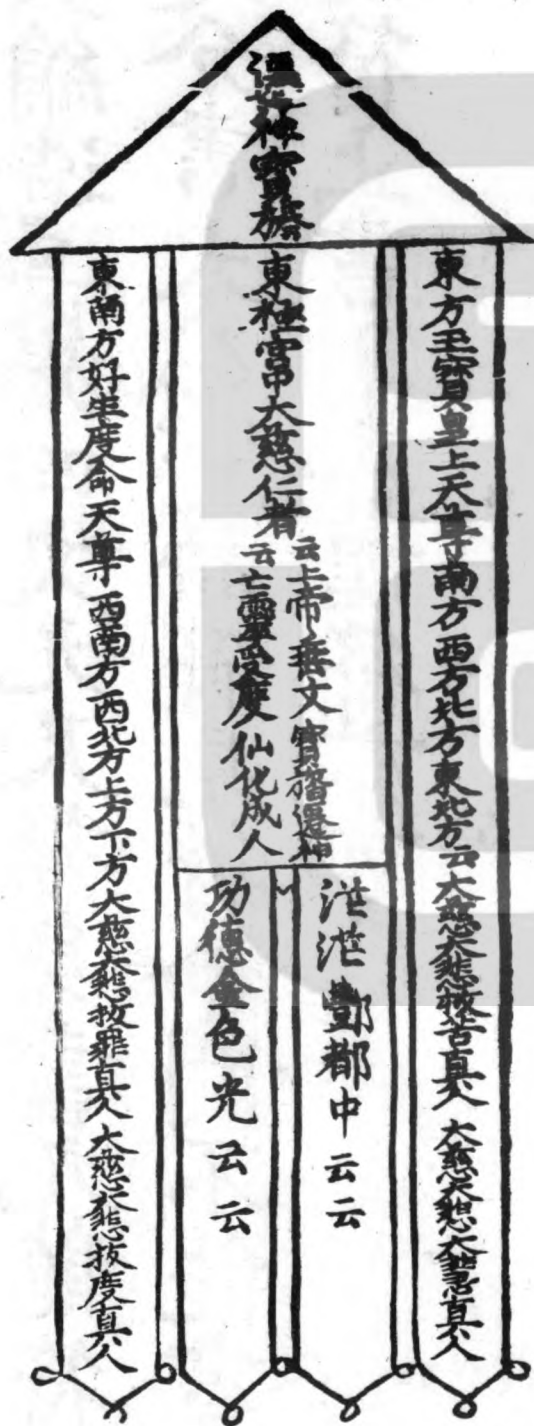 還神寶旛
東方玉寶皇上天尊南方西方北方東北方云大慈大悲救苦真人大慈大悲大惠真人
東極宮中大慈仁者
云上帝垂文寶旛還神
云亡靈受度仙化成人
茫茫酆都中云云
功德金色光云云
東南方好生度命天尊西南方西北方上方下方大慈大悲拔罪真人大慈大悲拔度真人